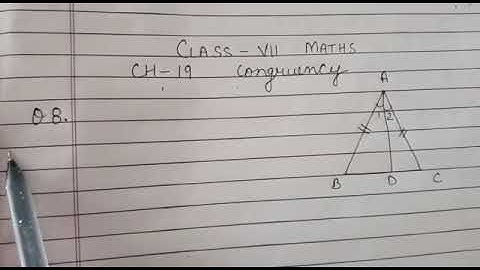 CLASS - VII MATHS
CH-19 Congruency
Q8.
A
1 2
B D C